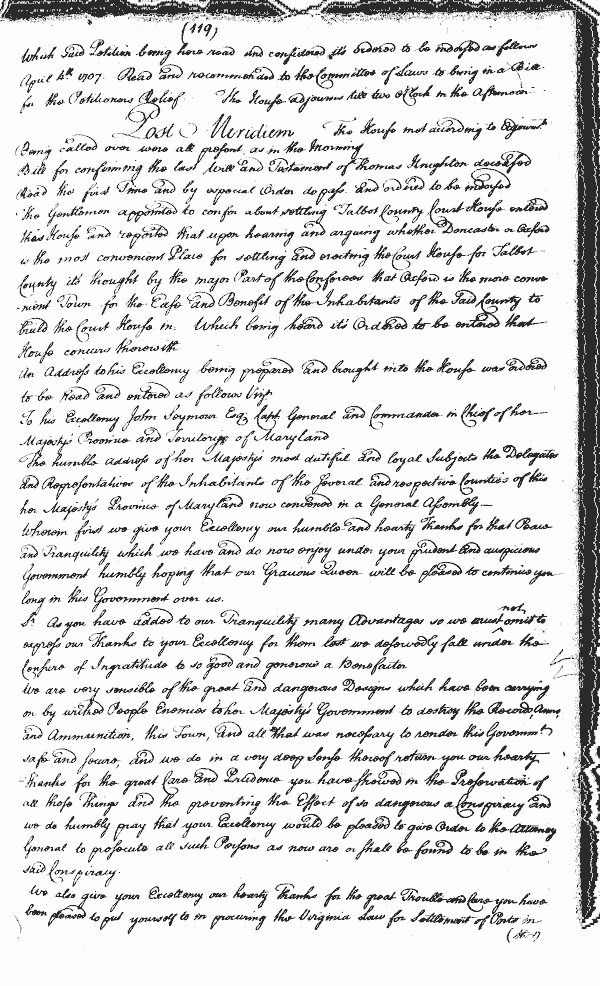 (119)
Which said Petition being here read and considered its ordered to be indorsed as follows
April 4th 1707. Read and recommended to the Committee of Laws to bring in a Bill
for the Petitioners Relief The House adjourns till two o'Clock in the Afternoon
Post Meridiem The House met according to Adjournmt
Being called over were all present, as in the Morning
Bill for confirming the last Will and Testament of Thomas Knighton deceased
Read the first Time and by especial Order do pass. and ordered to be indorsed
The Gentlemen appointed to confer about settling Talbot County Court House entered
this House and reported that upon hearing and arguing whether Doncaster or Oxford
is the most convenient Place for settling and erecting the Court House for Talbot
County its thought by the major Part of the Conferees that Oxford is the more conve
nient Town for the Ease and Benefit of the Inhabitants of the said County to
build the Court House in. Which being heard it's Ordered to be entered that
House concurs therewith
An Address to his Excellency being prepared and brought into the House was ordered
to be Read and entered as follows Vizt
To his Excellency John Seymour Esq Capt General and Commander in Chief of her
Majesty's Province and Territorys of Maryland
The humble address of her Majesty's most dutiful and loyal Subjects the Delegates
and Representatives of the Inhabitants of the several and respective Counties of this
her Majesty's Province of Maryland now convened in a General Assembly
Wherein first we give your Excellency our humble and hearty Thanks for that Peace
and Tranquility which we have and do now enjoy under your prudent and auspicious
Government humbly hoping that our Gracious Queen will be pleased to continue you
long in this Government over us.
Sr. As you have added to our Tranquility many Advantages so we must not omit to
express our Thanks to your Excellency for them lest we deservedly fall under the
Censure of Ingratitude to so good and generous a Benefactor
We are very sensible of the great and dangerous Designs which have been carrying
on by wicked People Enemies to her Majesty's Government to destroy the Records Arms,
and Ammunition, this Town, and all that was necessary to render this Governmt
safe and secure, and we do in a very deep Sense thereof return you our hearty
Thanks for the great Care and Prudence you have shewed in the Preservation of
all those Things and the preventing the Effect of so dangerous a Conspiracy and
we do humbly pray that your Excellency would be pleased to give Order to the Attorney
General to prosecute all such Persons as now are or shall be found to be in the
said Conspiracy.
We also give your Excellency our hearty Thanks for the great Trouble and Care you have
been pleased to put yourself to in procuring the Virginia Law for Settlement of Ports in